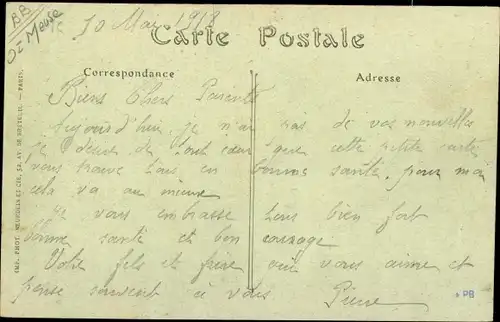 le 10 Mai 1918
BB
DI Meuse
Carte Postale
Correspondance
Adresse
Biens Chers Parents
aujourd'hui je n'ai pas de vos nouvelles
je désire de tout cœur que cette petite carte
vous trouve tous en bonne santé, pour moi
cela va au mieux
Je vous embrasse tous bien fort
bonne santé et bon courage
Votre fils et frère qui vous aime et
pense souvent à vous Pierre
IMP. PHOT. NEURDEIN ET CIE, 52, AV. DE BRETEUIL. — PARIS.
PB